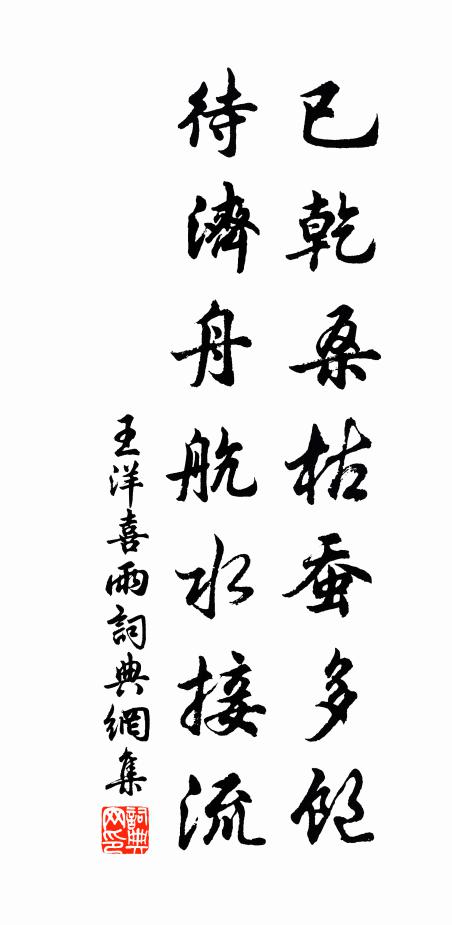 已乾桑枯蚕多饱
待濟舟航水接流
王洋喜雨詞典網集
詞典网印